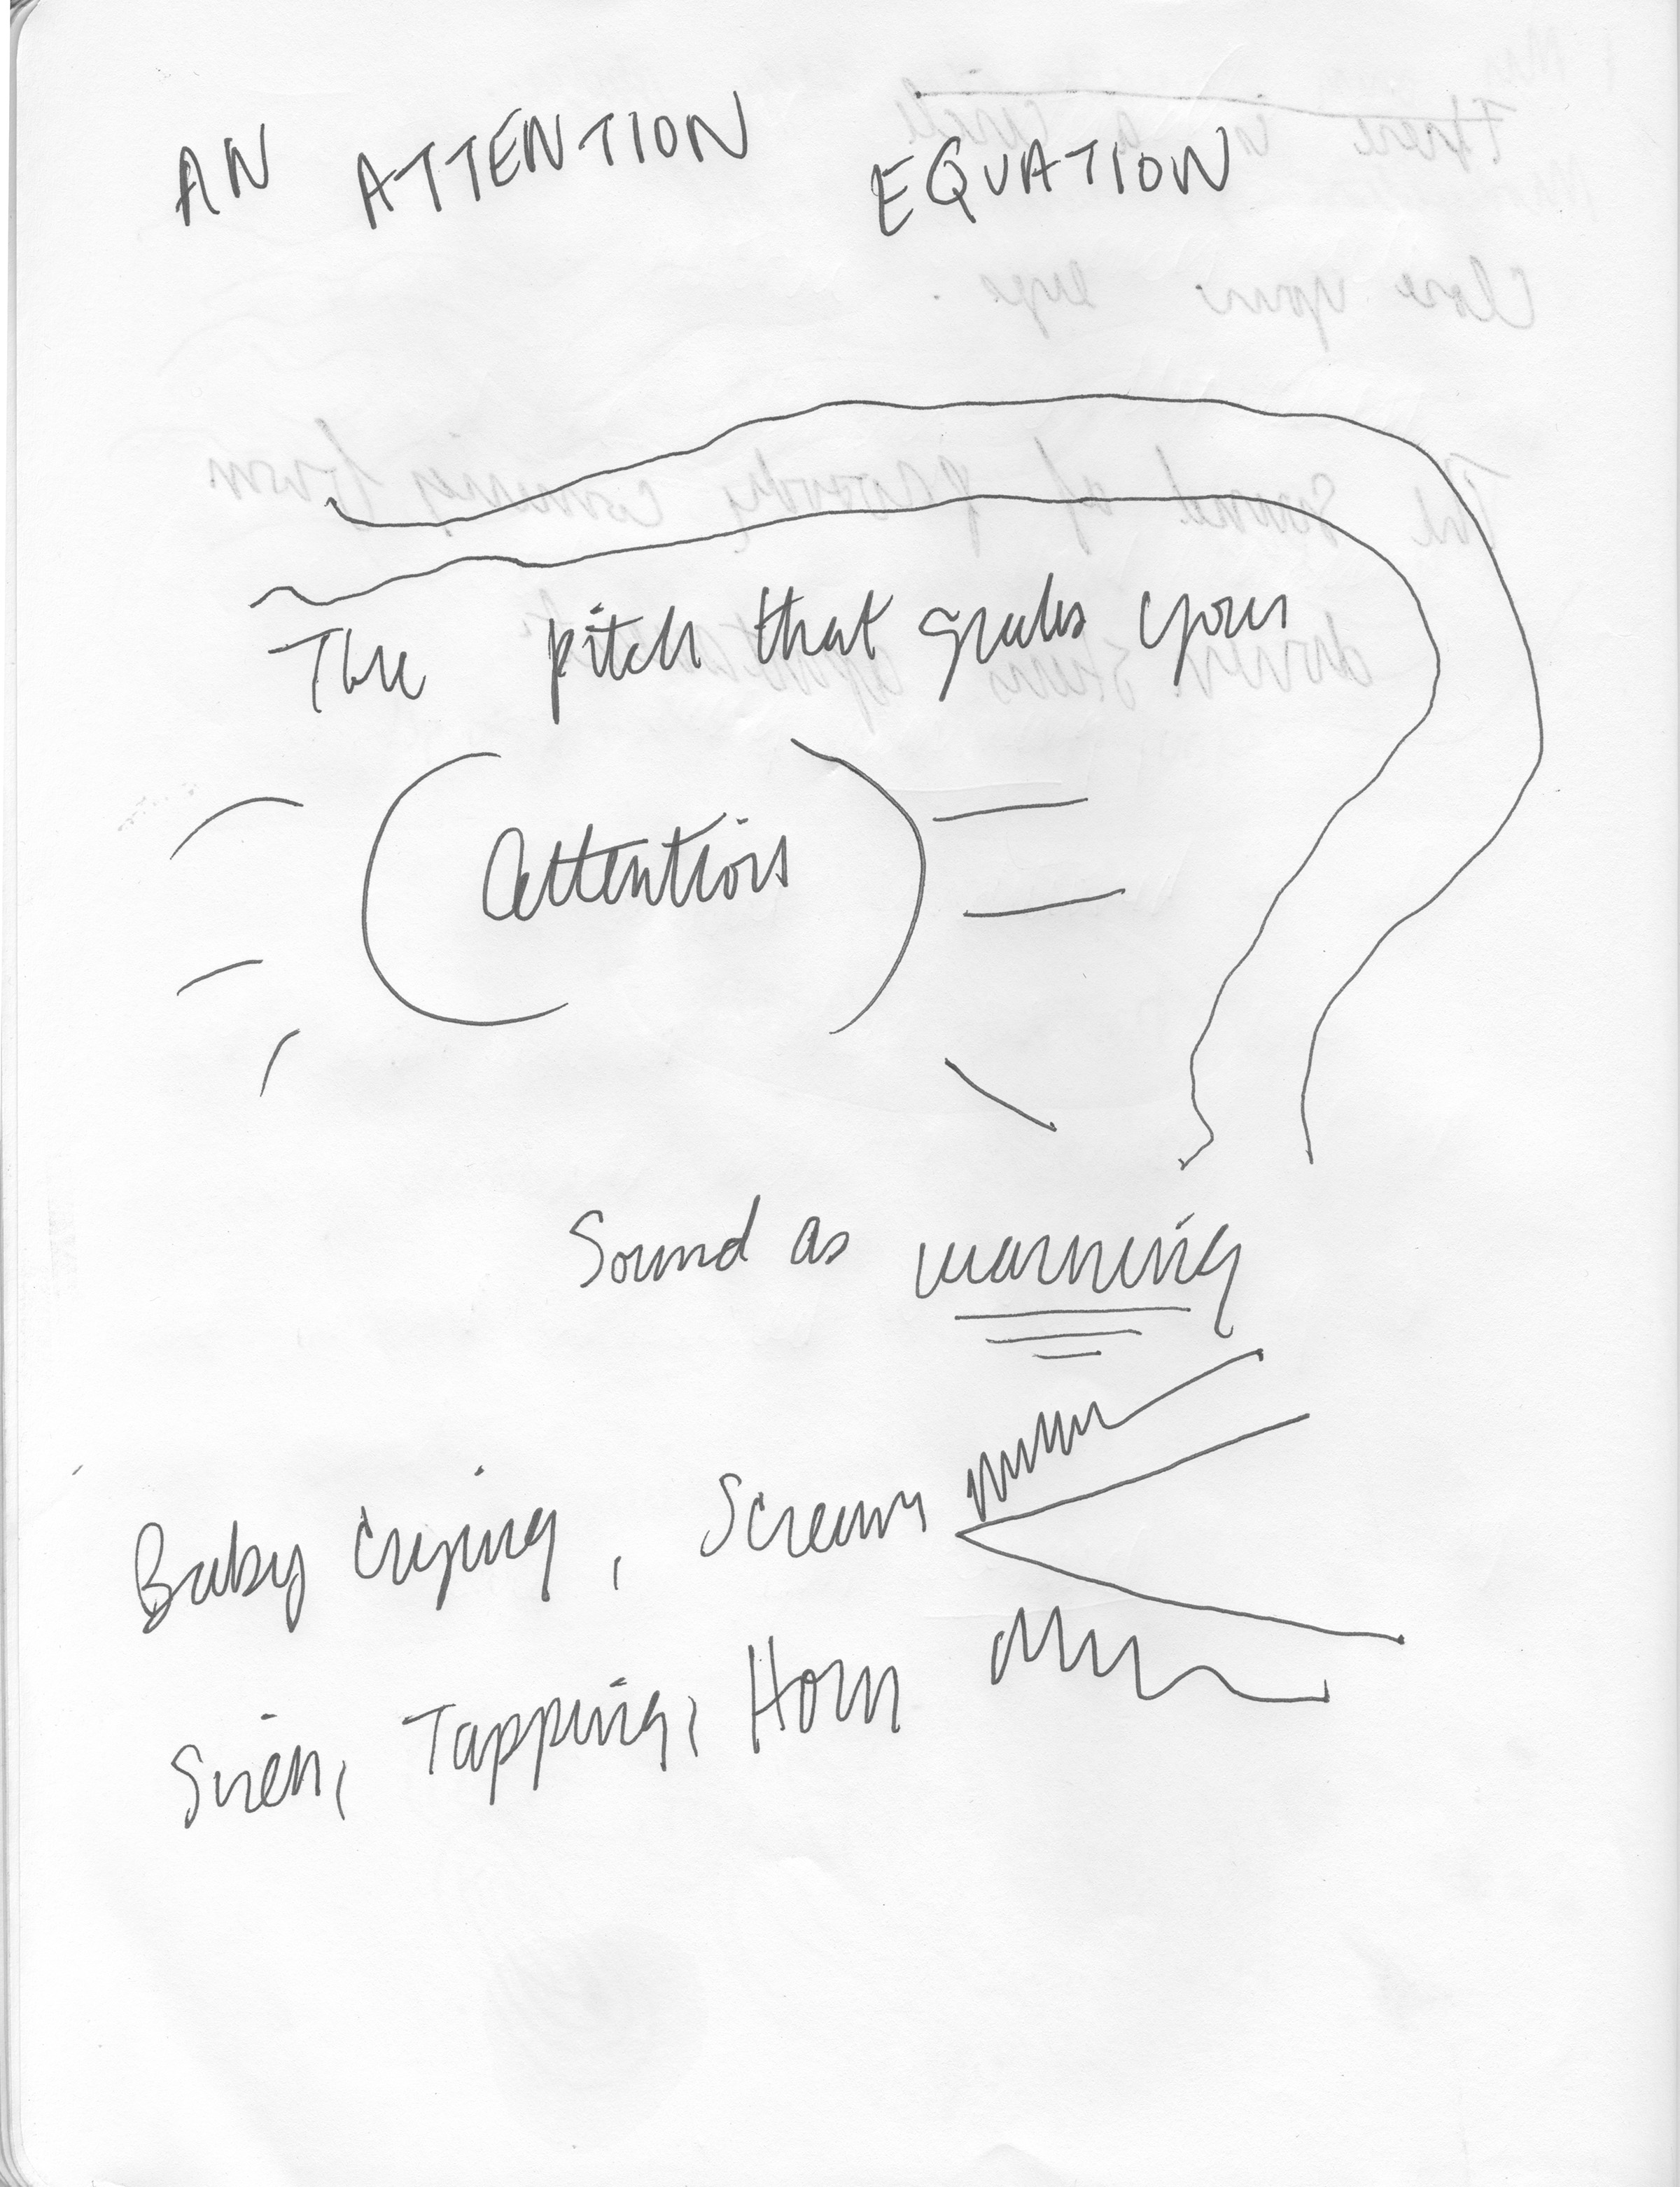 AN ATTENTION EQUATION
The pitch that grabs your
attention
Sound as warning
Baby crying, Scream
Siren, Tapping, Horn